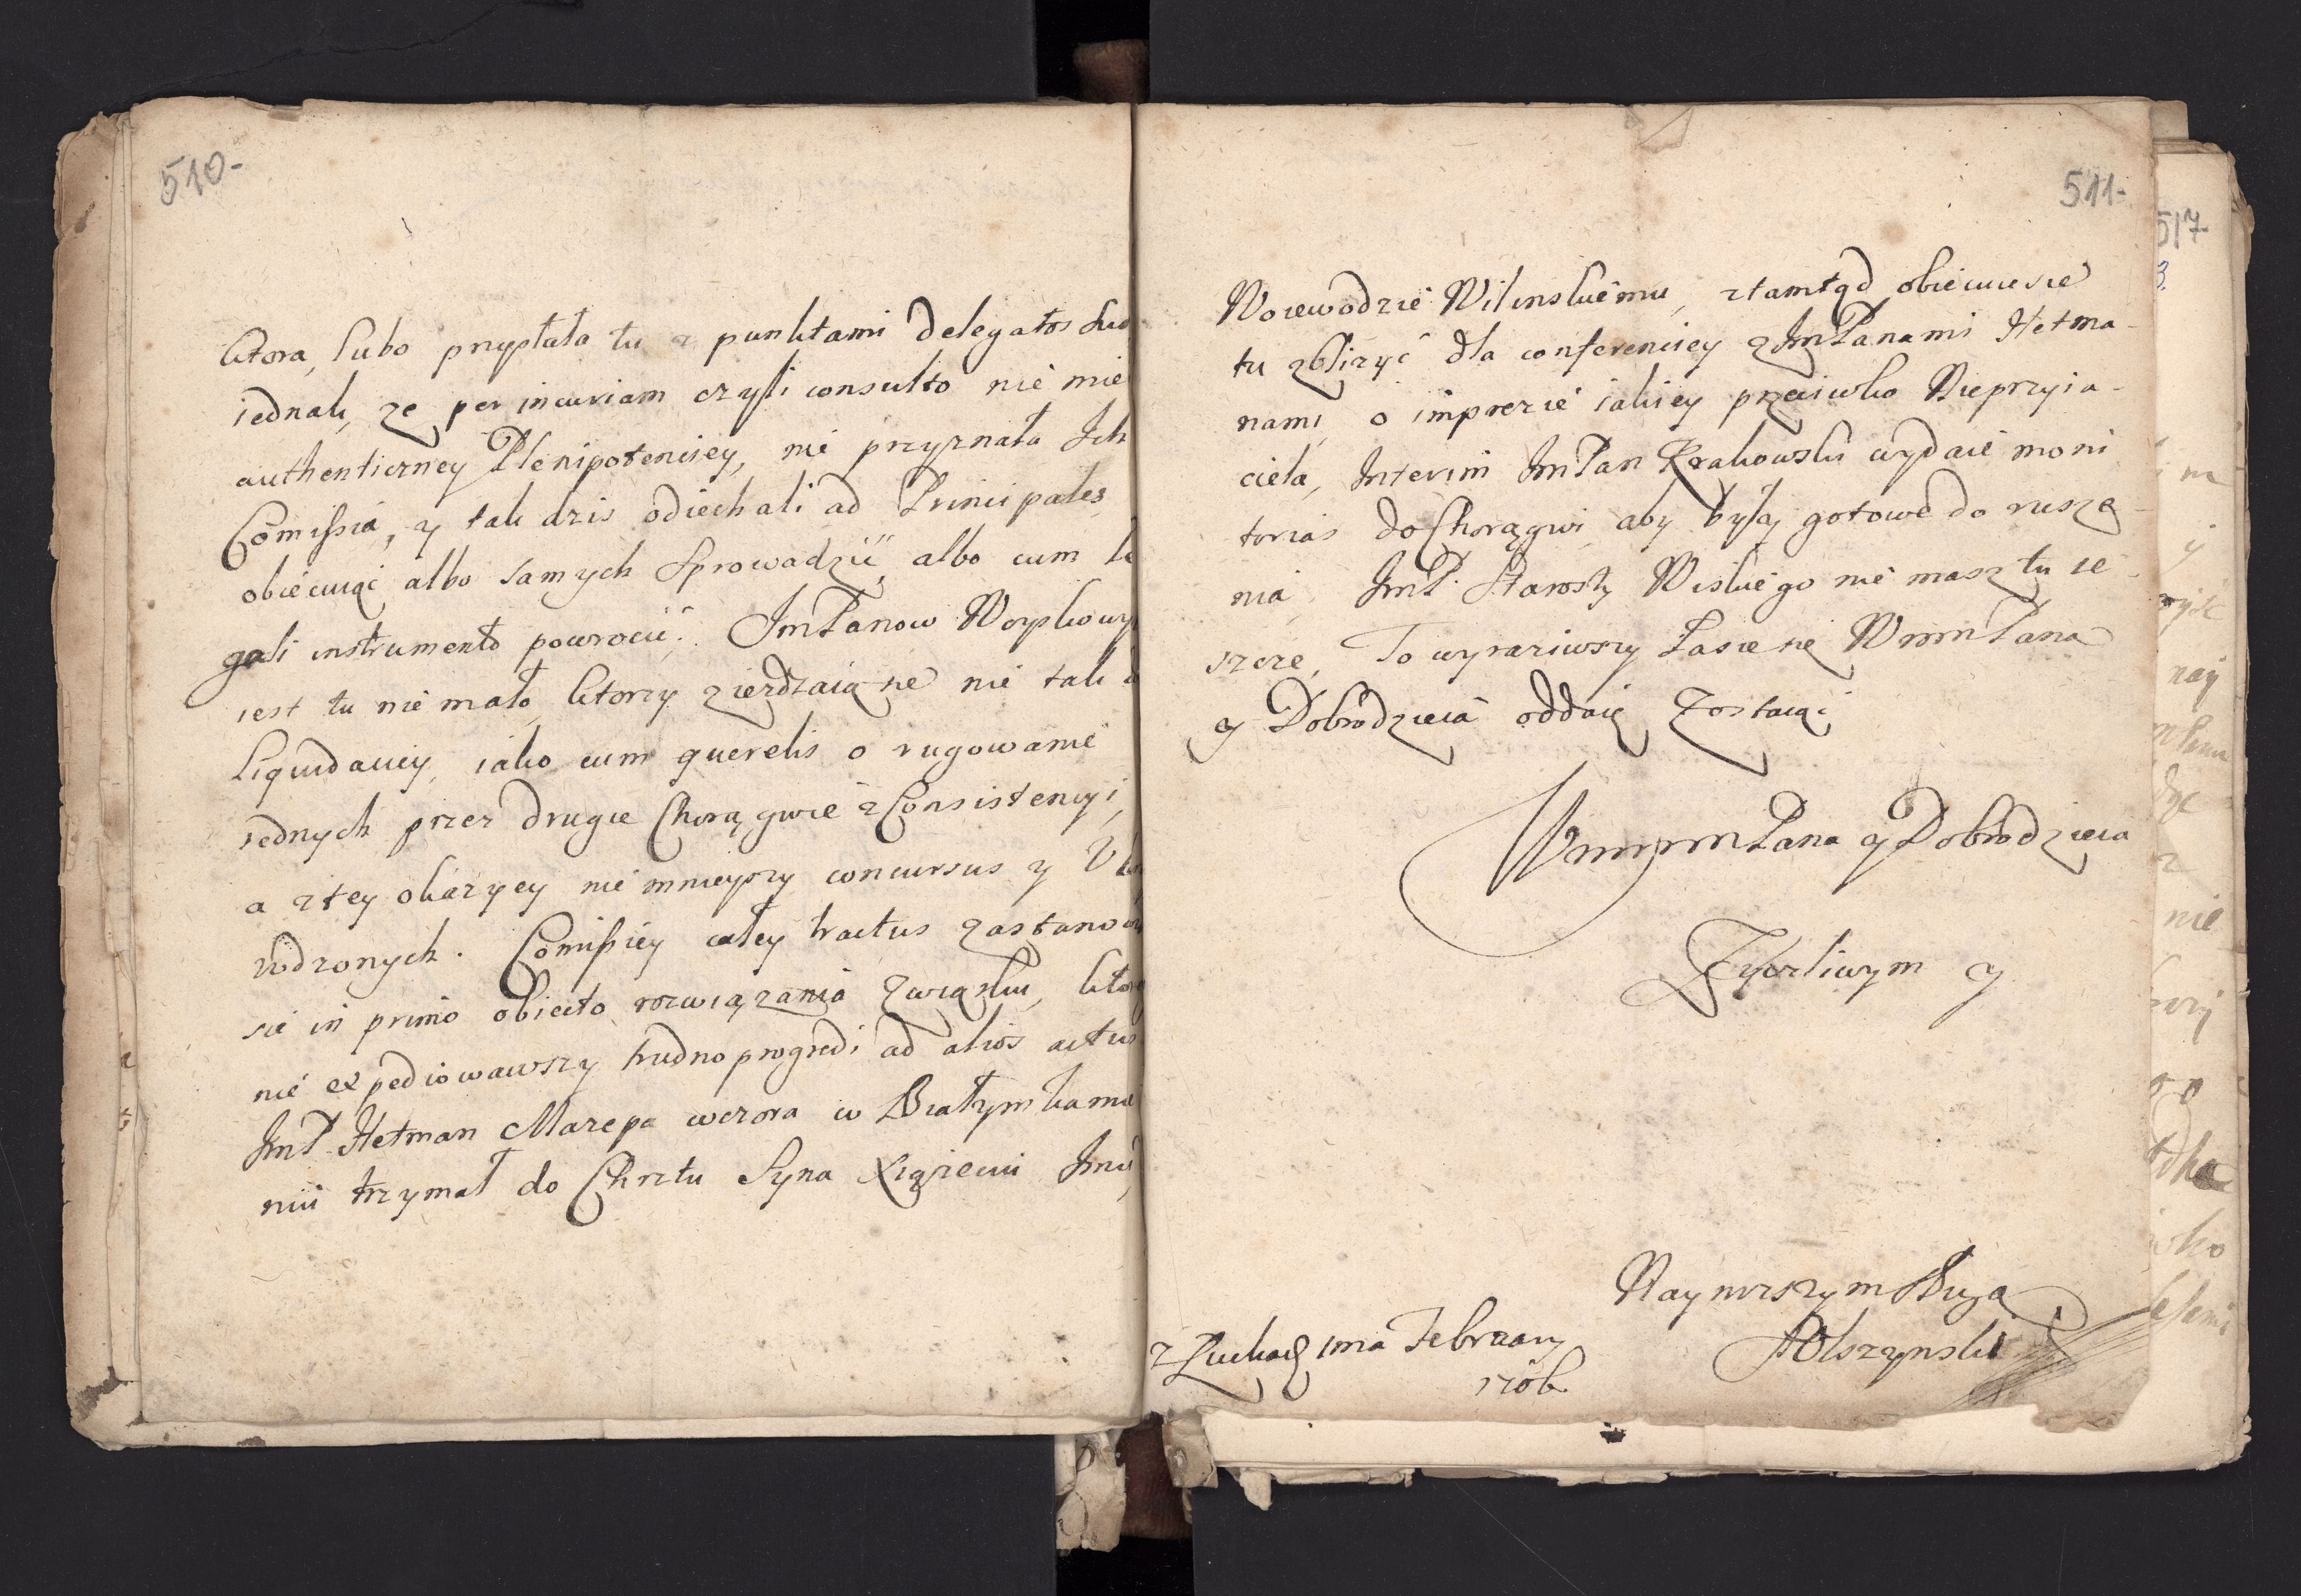 510-
ktora, lubo przysłała tu z punktami delegatos suos
iednak, ze per incuriam czyli consulto nie mie
authenticzney Plenipotenciey, nie przyznała Ich
Comissia, y tak dzis odiechali ad Principales
obiecuiąc albo samych sprowadzić, albo cum le
gali instrumento powrocić. JmPanow Woyskowych
iest tu nie mało, ktorzy zieżdzaią sie nie tak
Liquidaciey, iako cum querelis o rugowanie
iednych przez drugie Chorągwie z Consistencyi,
a z tey okazyey nie mnieyszy concursus y
wdzonych. Comissiey całey tractus zastanow
sie in primo obiecto rozwiązania związku, ktorego
nie expediowawszy trudno progredi ad alios actus
JmP. Hetman Mazepa wczora w Białym kamie
niu trzymał do Chrztu Syna Xiązęciu Jmci
511-
Woiewodzie Wilenskiemu, ztamtąd obiecuie sie
tu zblizyć dla conferenciey z JmPanami Hetma-
nami, o imprezie iakiey przeciwko Nieprzyia-
ciela, Interim JmPan Krakowski wydaie moni
torias do Chorągwi aby były gotowe do rusze-
nia, JmP. Starosty Wiskiego nie masz tu ie-
szcze, To wyraziwszy Łasce się WmmPana
y Dobrodzieia oddaię zostaiąc
WmmmPana y Dobrodzieia
Zyczliwym y
Nayniższym sługą
AOlszynski
z Łucka 1ma February
1706.
517-